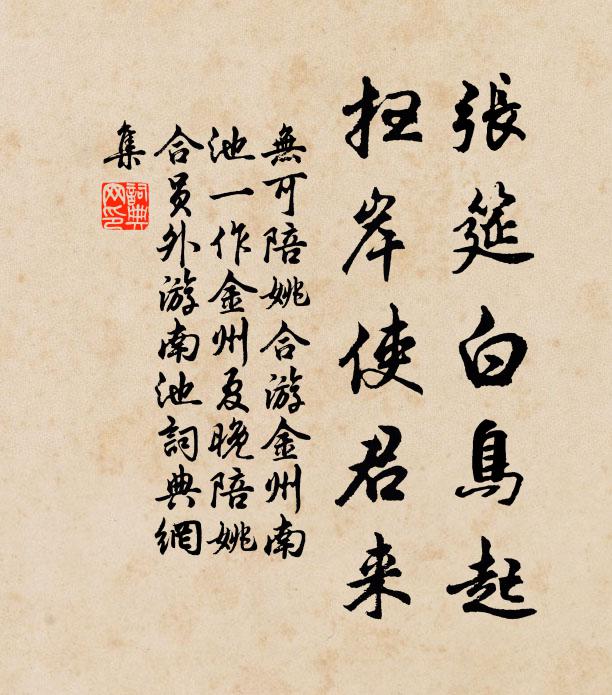 張筵白鳥起
扫岸使君来
無可陪姚合游金州南
池一作金州夏晚陪姚
合員外游南池詞典網
集
詞典网印